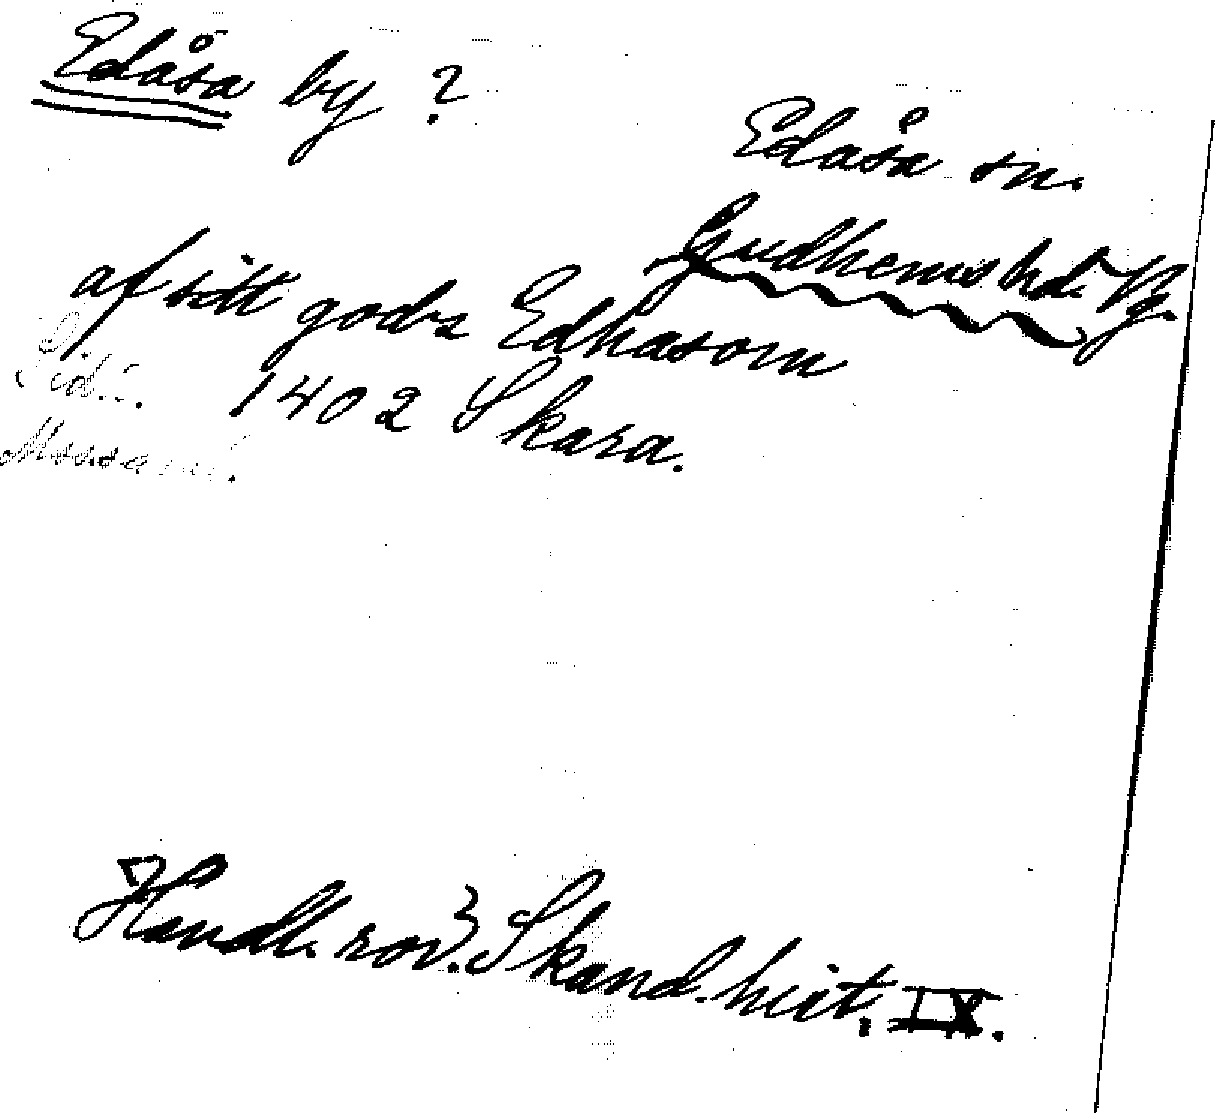 Edåsa by ?
Edåsa sn.
Gudhems hd. Vg.
af sitt gods Edhasom
1402 Skara.
Handl. rör. Skand. hist. IX.